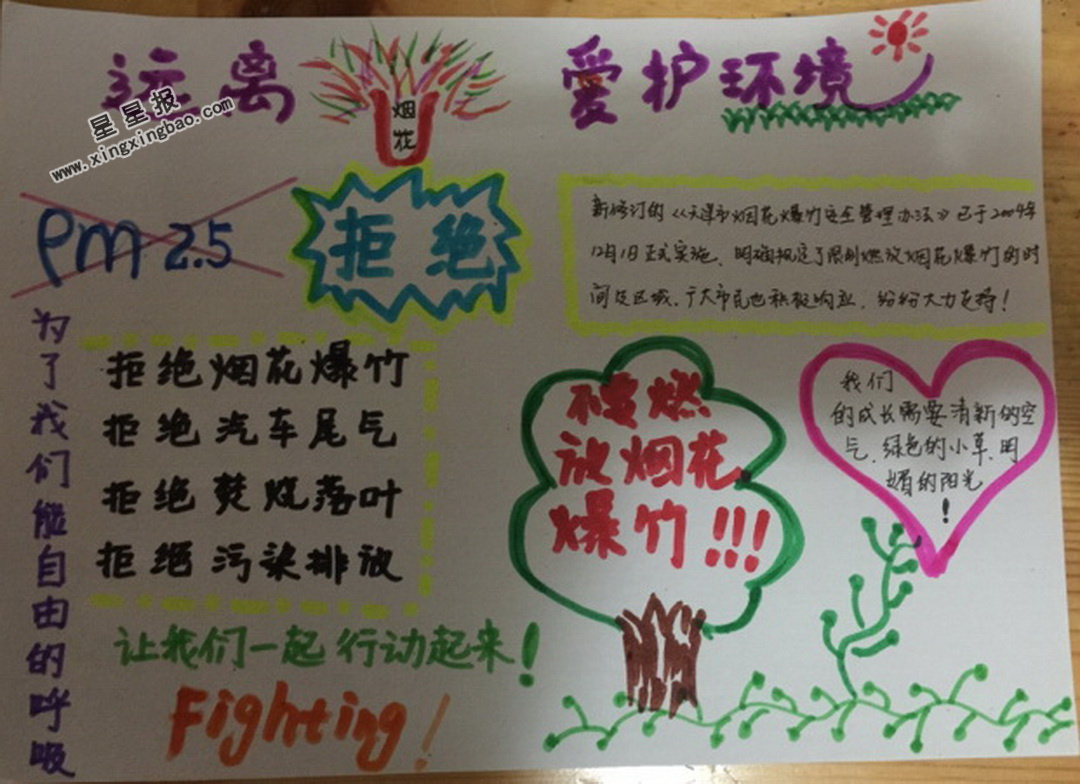 远离
烟花
爱护环境
星星报
www.xingxingbao.com
Pm 2.5
拒绝
新修订的《天津市烟花爆竹安全管理办法》已于2004年
12月1日正式实施、明确规定了限制燃放烟花爆竹的时
间及区域、广大市民也积极响应，纷纷大力支持！
为了我们能自由的呼吸
拒绝烟花爆竹
拒绝汽车尾气
拒绝焚烧落叶
拒绝污染排放
不要燃
放烟花
爆竹!!!
我们
的成长需要清新的空
气、绿色的小草、明
媚的阳光
！
让我们一起行动起来！
Fighting！